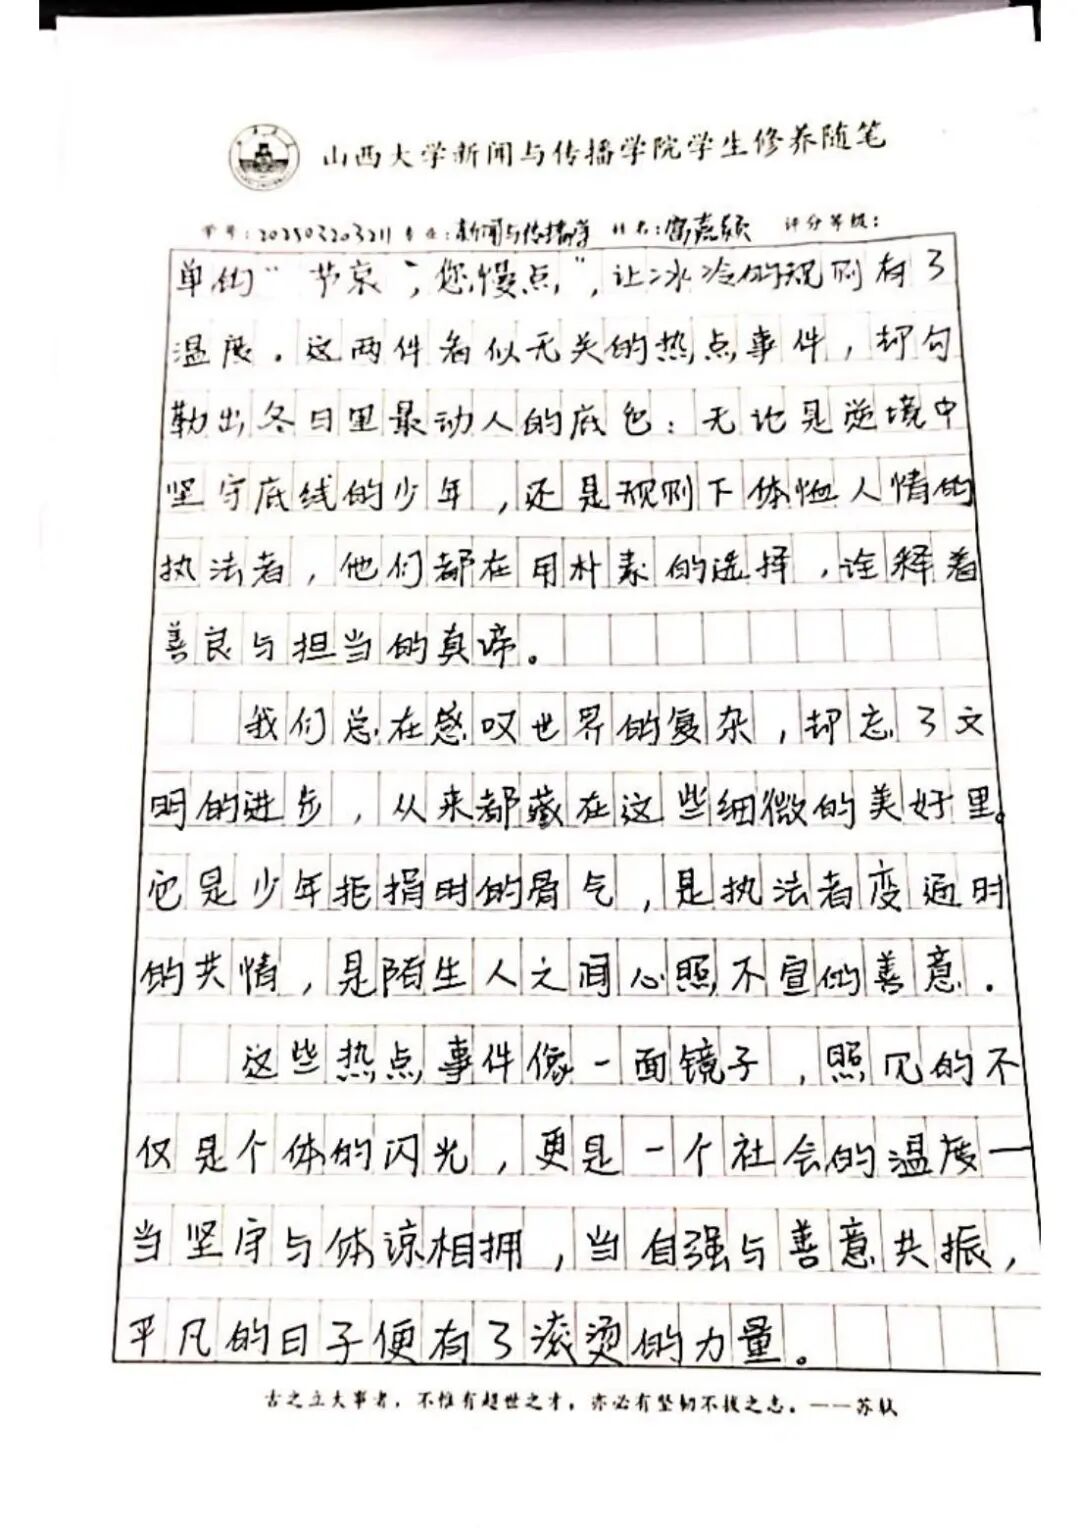 山西大学新闻与传播学院学生修养随笔
学号:202503203211 专业:新闻与传播学 姓名: 评分等级:
单的“节哀,您慢点”,让冰冷的规则有了
温度。这两件看似无关的热点事件,却勾
勒出冬日里最动人的底色:无论是逆境中
坚守底线的少年,还是规则下体恤人情的
执法者,他们都在用朴素的选择,诠释着
善良与担当的真谛。
我们总在感叹世界的复杂,却忘了文
明的进步,从来都藏在这些细微的美好里。
它是少年拒捐时的骨气,是执法者变通时
的共情,是陌生人之间心照不宣的善意。
这些热点事件像一面镜子,照见的不
仅是个体的闪光,更是一个社会的温度—
当坚守与体谅相拥,当自强与善意共振,
平凡的日子便有了滚烫的力量。
古之立大事者,不惟有超世之才,亦必有坚韧不拔之志。——苏轼